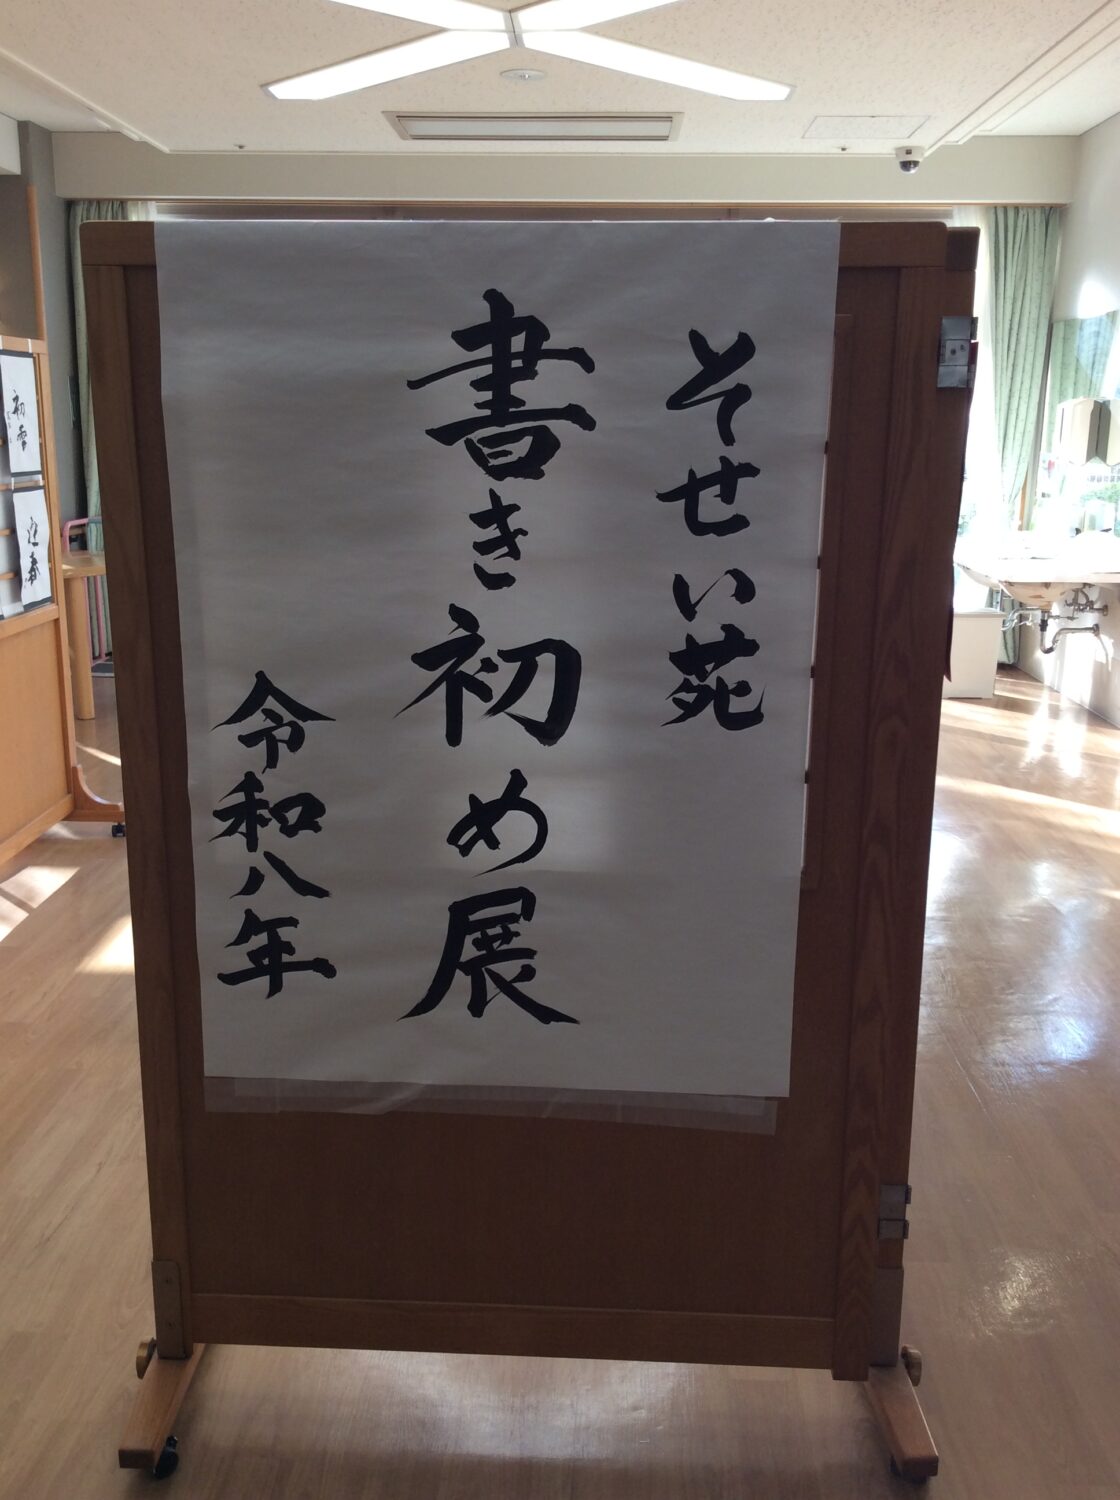 そせい苑
書き初め展
令和八年
初雪
迎春